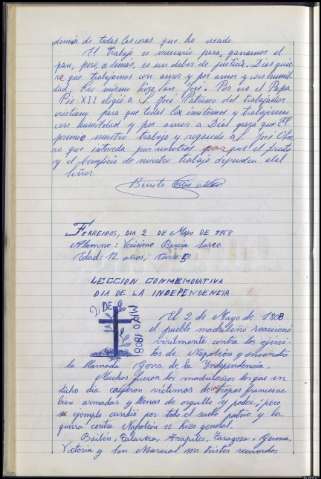 demás de todas las cosas que ha creado.
El trabajo es necesario para ganarnos el
pan, pero, además, es un deber de justicia. Dios quie
re que trabajemos con amor y por amor y con humil
dad. Eso mismo hizo San José. Por eso el Papa
Pío XII eligió a S. José Patrono del trabajador
cristiano para que todos le imitemos y trabajemos
con humildad y por amor a Dios para que El
premie nuestro trabajo y a San José
que interceda por nosotros que el fruto
y el beneficio de nuestro trabajo dependen del
Señor.
Benito
Ferreiros, día 2 de Mayo de 1958
Alumno: Varela
Edad: 12 años,
LECCION CONMEMORATIVA
DIA DE LA INDEPENDENCIA
2 DE MAYO 1808
El 2 de Mayo de 1808
el pueblo madrileño reaccionó
virilmente contra los ejérci
tos de Napoleón y encendió
la llamada Guerra de la Independencia.
Muchos fueron los madrileños que en
dicho día cayeron víctimas de tropas francesas
bien armadas y llenas de orgullo y poder; pero
su ejemplo cundió por todo el suelo patrio y la
guerra contra Napoleón se hizo general.
Bailén, Talavera, Arapiles, Zaragoza, Gerona,
Vitoria y San Marcial son tristes recuerdos